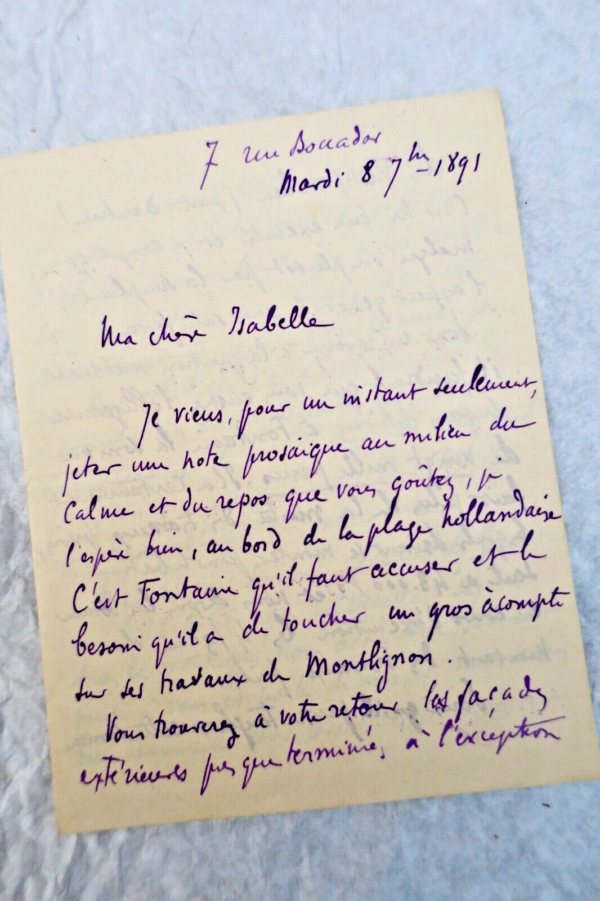 7 rue Boccador
Mardi 8 7bre 1891
Ma chère Isabelle
Je viens, pour un instant seulement,
jeter une note prosaïque au milieu du
calme et du repos que vous goûtez, je
l'espère bien, au bord de la plage hollandaise
C'est Fontaine qu'il faut accuser et le
besoin qu'il a de toucher un gros àcompte
sur ses travaux de Montlignon.
Vous trouverez à votre retour les façades
extérieures presque terminées à l'exception